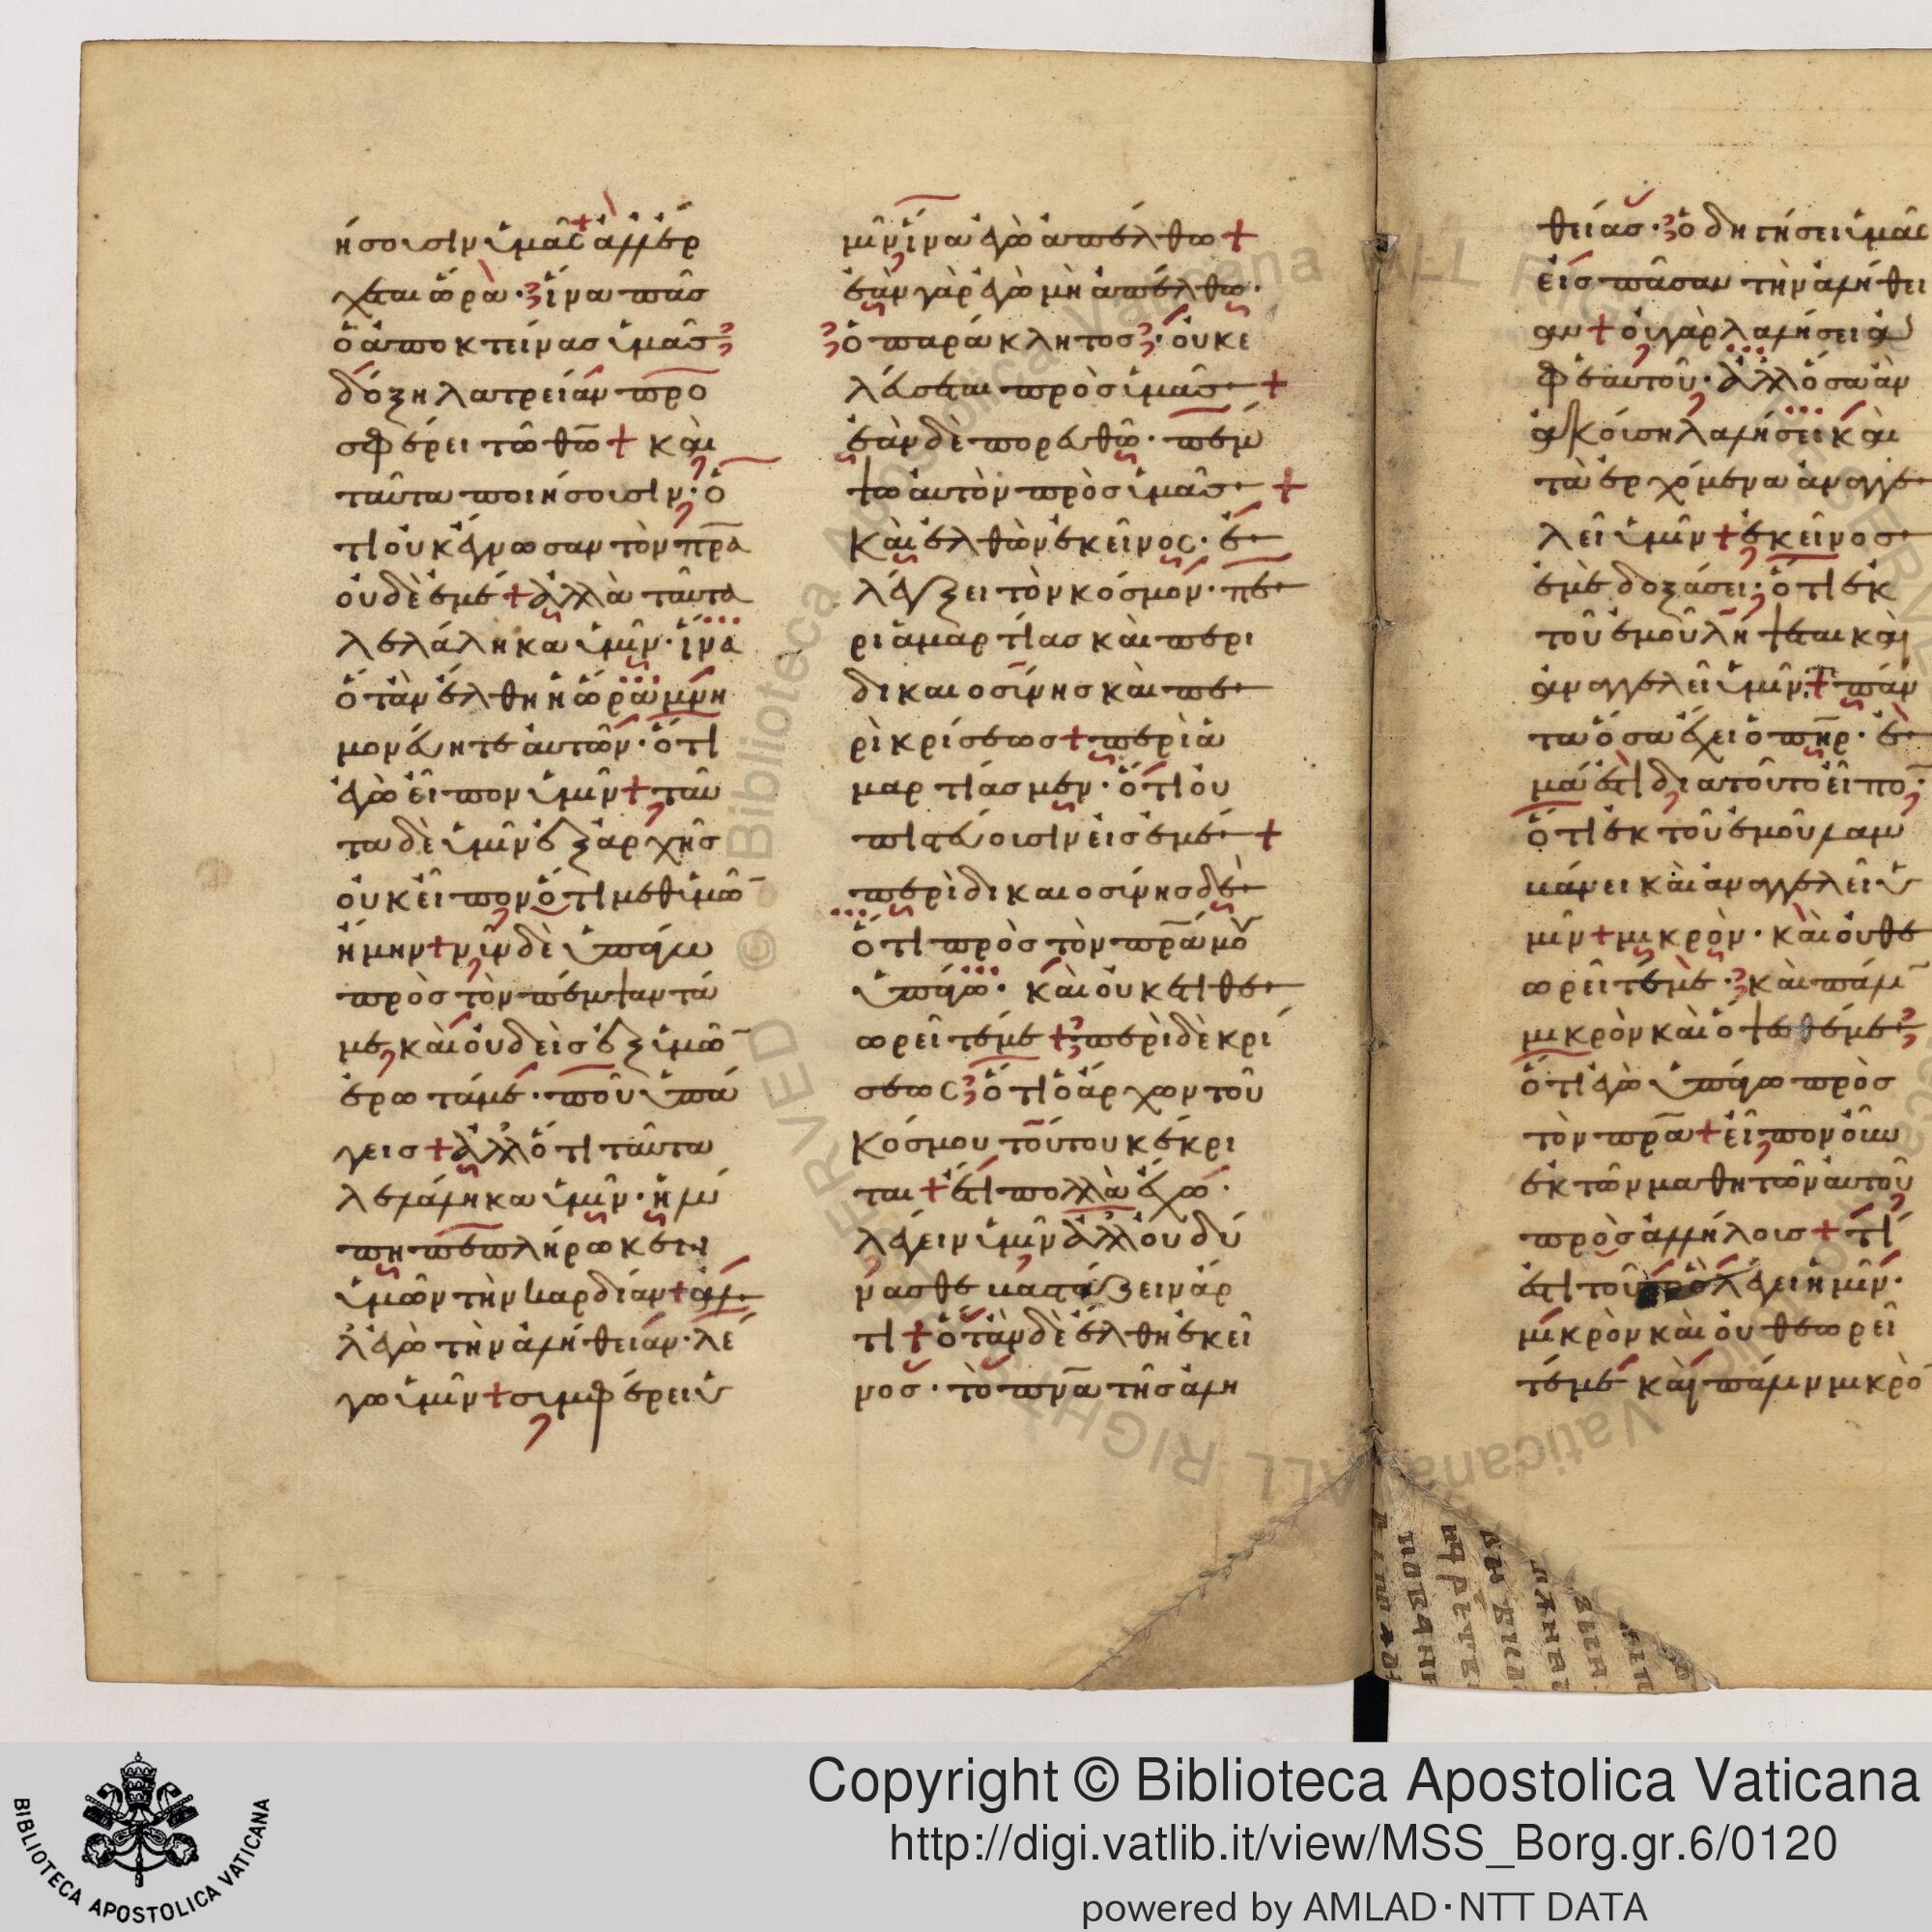 ήσουσιν ὑμᾶς + ἀλλ' ἔρ
χεται ὥρα· ἵνα πᾶσ
ὁ ἀποκτείνασ ὑμᾶσ
δόξη λατρείαν προ
σφέρει τῶ θῶ + καὶ
ταῦτα ποιήσουσιν· ὅ
τι οὐκ ἔγνωσαν τὸν πρα
οὐδὲ ἐμέ + ἀλλὰ ταῦτα
λελάληκα ὑμῖν· ἵνα
ὅταν ἔλθη ἡ ὥρα μνη
μονεύητε αὐτῶν· ὅτι
ἐγὼ εἶπον ὑμῖν + ταῦ
τα δὲ ὑμῖν ἐξ ἀρχῆσ
οὐκ εἶπον ὅτι μεθ ὑμῶ
ἤμην + νῦν δὲ ὑπάγω
πρὸσ τὸν πέμψαντά
με, καὶ οὐδεὶσ ἐξ ὑμῶ
ἐρωτά με· ποῦ ὑπά
γεισ + ἀλλ' ὅτι ταῦτα
λελάληκα ὑμῖν· ἡ λύ
πη πεπλήρωκεν
ὑμῶν τὴν καρδίαν + ἀλ
λ' ἐγὼ τὴν ἀλήθειαν· λέ
γω ὑμῖν + συμφέρει ὑ
μῖν ἵνα ἐγὼ ἀπέλθω +
ἐὰν γὰρ ἐγὼ μὴ ἀπέλθω·
ὁ παράκλητοσ· οὐκ ἐ
λεύσεται πρὸσ ὑμᾶσ +
ἐὰν δὲ πορευθῶ· πέμ
ψω αὐτὸν πρὸσ ὑμᾶσ +
Καὶ ἐλθὼν ἐκεῖνος· ἐ
λέγξει τὸν κόσμον· πε
ρι ἁμαρτίασ καὶ περι
δικαιοσύνησ καὶ πε
ρὶ κρίσεωσ + περὶ ἁ
μαρτίάσ μεν· ὅτι οὐ
πιστεύουσιν εἰσ ἐμέ +
περὶ δικαιοσύνησ δὲ
ὅτι πρὸσ τὸν πρα μου
ὑπάγω· καὶ οὐκέτι θε
ωρεῖτέ με + περὶ δὲ κρί
σεως ὅτι ὁ ἄρχων τοῦ
Κόσμου τούτου κέκρι
ται + ἔτι πολλὰ ἔχω·
λέγειν ὑμῖν ἀλλ' οὐ δύ
νασθε βαστάζειν ἄρ
τι + ὅταν δὲ ἔλθη ἐκεῖ
νοσ· τὸ πνα τῆσ ἀλη
θείασ· ὁδηγήσει ὑμᾶς
εἰσ πᾶσαν τὴν ἀλήθει
αν + οὐ γὰρ λαλήσει ἀ
φ ἑαυτοῦ· ἀλλ' ὅσα ἂν
ἀκούση λαλήσει καὶ
τὰ ἐρχόμενα ἀναγγε
λεῖ ὑμῖν + ἐκεῖνοσ
ἐμὲ δοξάσει· ὅτι ἐκ
τοῦ ἐμοῦ λήψεται καὶ
ἀναγγελεῖ ὑμῖν + πάν
τα ὅσα ἔχει ὁ πηρ· ἐ
μά ἐστι διατοῦτο εἶπον·
ὅτι ἐκ τοῦ ἐμοῦ λαμ
βάνει καὶ ἀναγγελεῖ ὑ
μῖν + μικρὸν· καὶ οὐ θε
ωρεῖτέ μὲ· καὶ πάλι
μικρὸν καὶ ὄψεσθέ με
ὅτι ἐγὼ ὑπάγω πρὸσ
τὸν πρα + εἶπον οὖν
ἐκ τῶν μαθητῶν αὐτοῦ
πρὸσ ἀλλήλουσ + τί
ἐστι τοῦτο ὃ λέγει ἡμῖν·
μικρὸν καὶ οὐ θεωρεῖ
τέ με καὶ πάλιν μικρὸ
Copyright © Biblioteca Apostolica Vaticana
http://digi.vatlib.it/view/MSS_Borg.gr.6/0120
powered by AMLAD·NTT DATA
BIBLIOTECA APOSTOLICA VATICANA